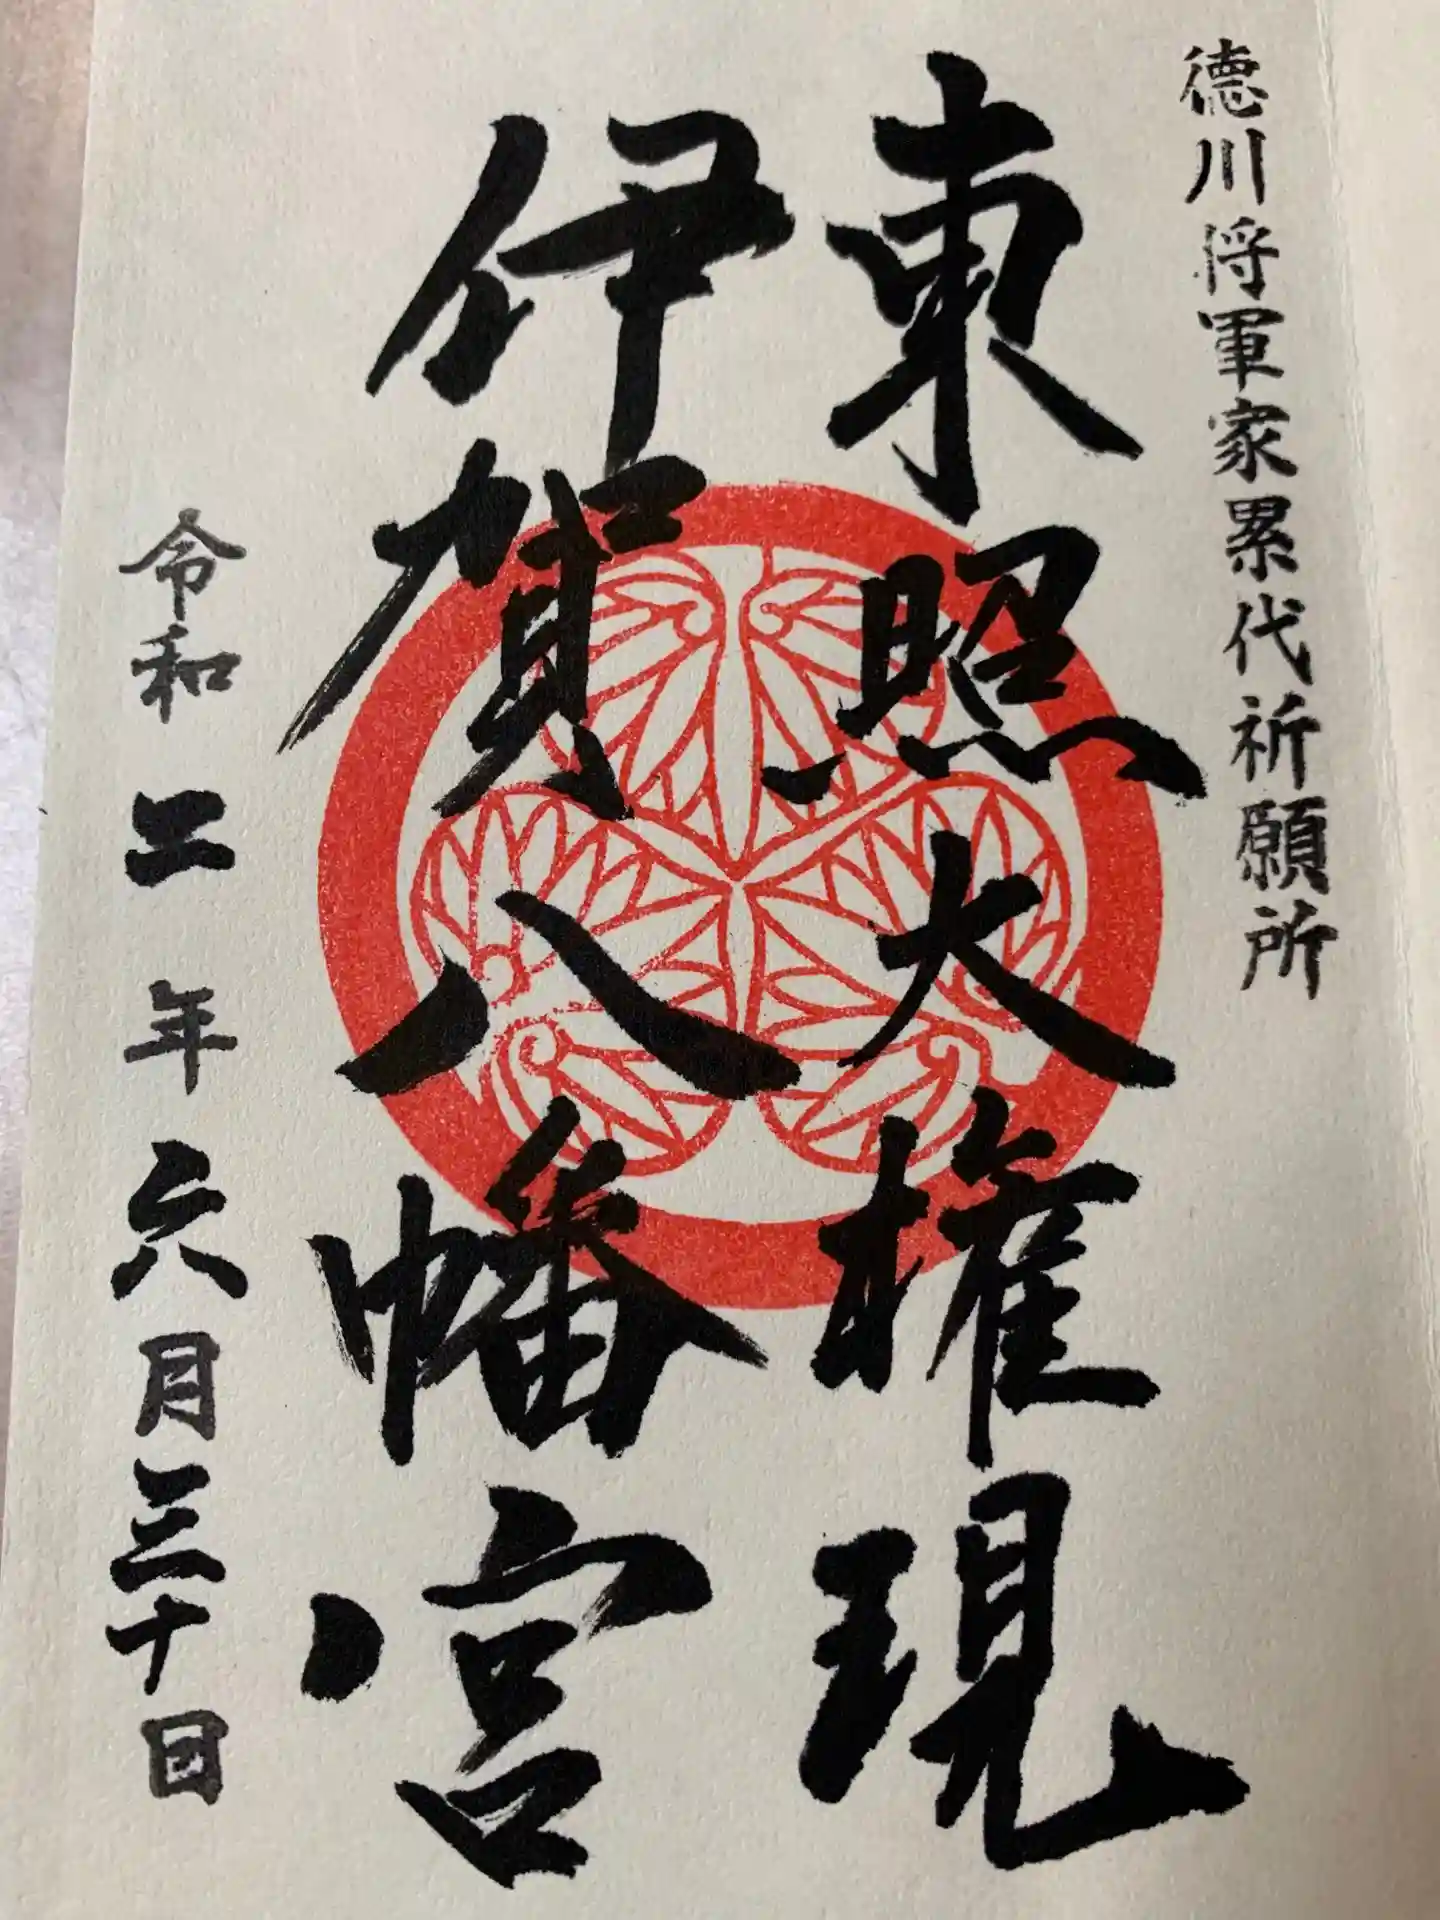 徳川将軍家累代祈願所
東照大権現
伊賀八幡宮
令和二年六月三十日